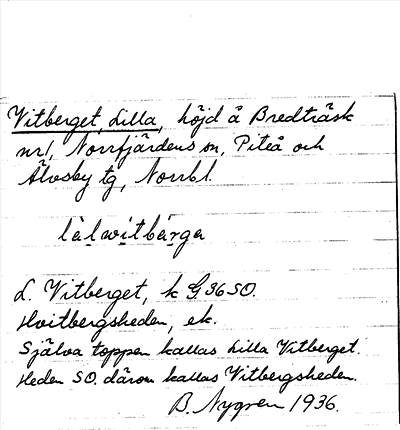 Vitberget, Lilla, höjd å Bredträsk
nr 1, Norrfjärdens sn, Piteå och
Älvsby tg, Norrbl.
làlwitbárga
L. Vitberget, k G.36SO.
Hvitbergsheden, ek.
Själva toppen kallas Lilla Vitberget.
Heden SO. därom kallas Vitbergsheden.
B. Nygren 1936.